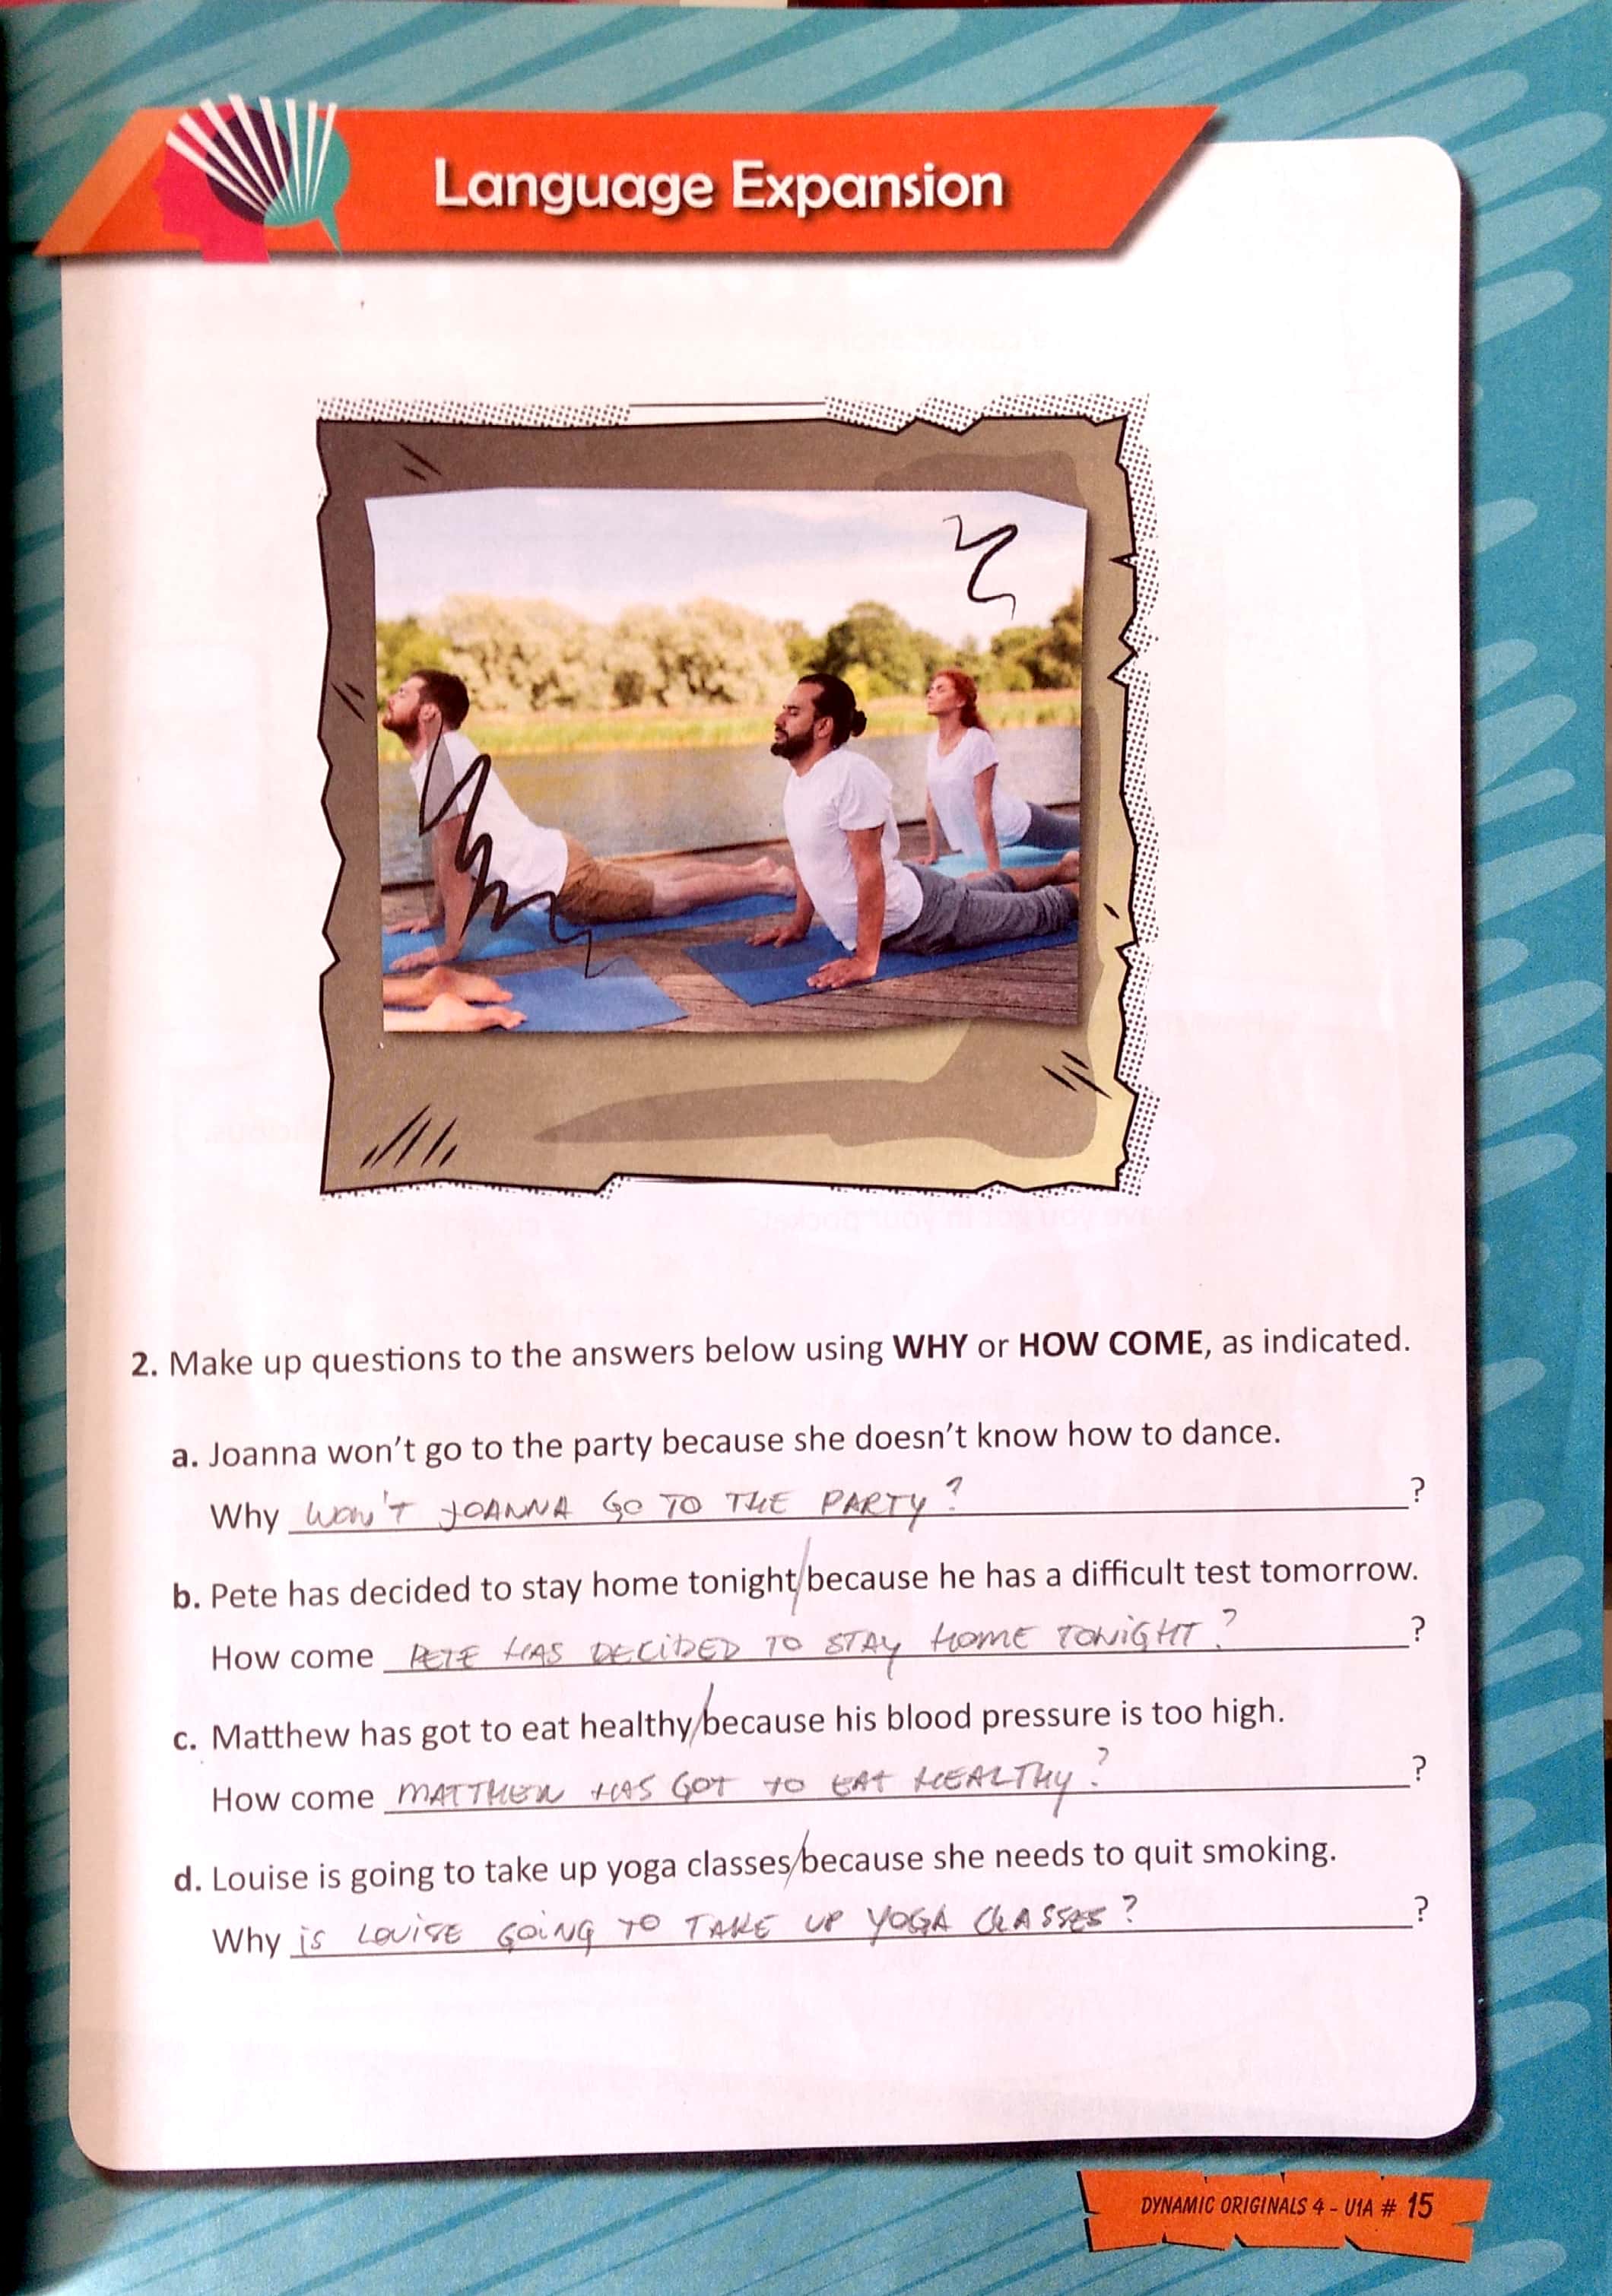 Language Expansion
2. Make up questions to the answers below using WHY or HOW COME, as indicated.
a. Joanna won't go to the party because she doesn't know how to dance.
Why WON'T JOANNA GO TO THE PARTY? ?
b. Pete has decided to stay home tonight/because he has a difficult test tomorrow.
How come PETE HAS DECIDED TO STAY HOME TONIGHT? ?
c. Matthew has got to eat healthy/because his blood pressure is too high.
How come MATTHEW HAS GOT TO EAT HEALTHY? ?
d. Louise is going to take up yoga classes/because she needs to quit smoking.
Why is LOUISE GOING TO TAKE UP YOGA CLASSES? ?
DYNAMIC ORIGINALS 4 - U1A # 15